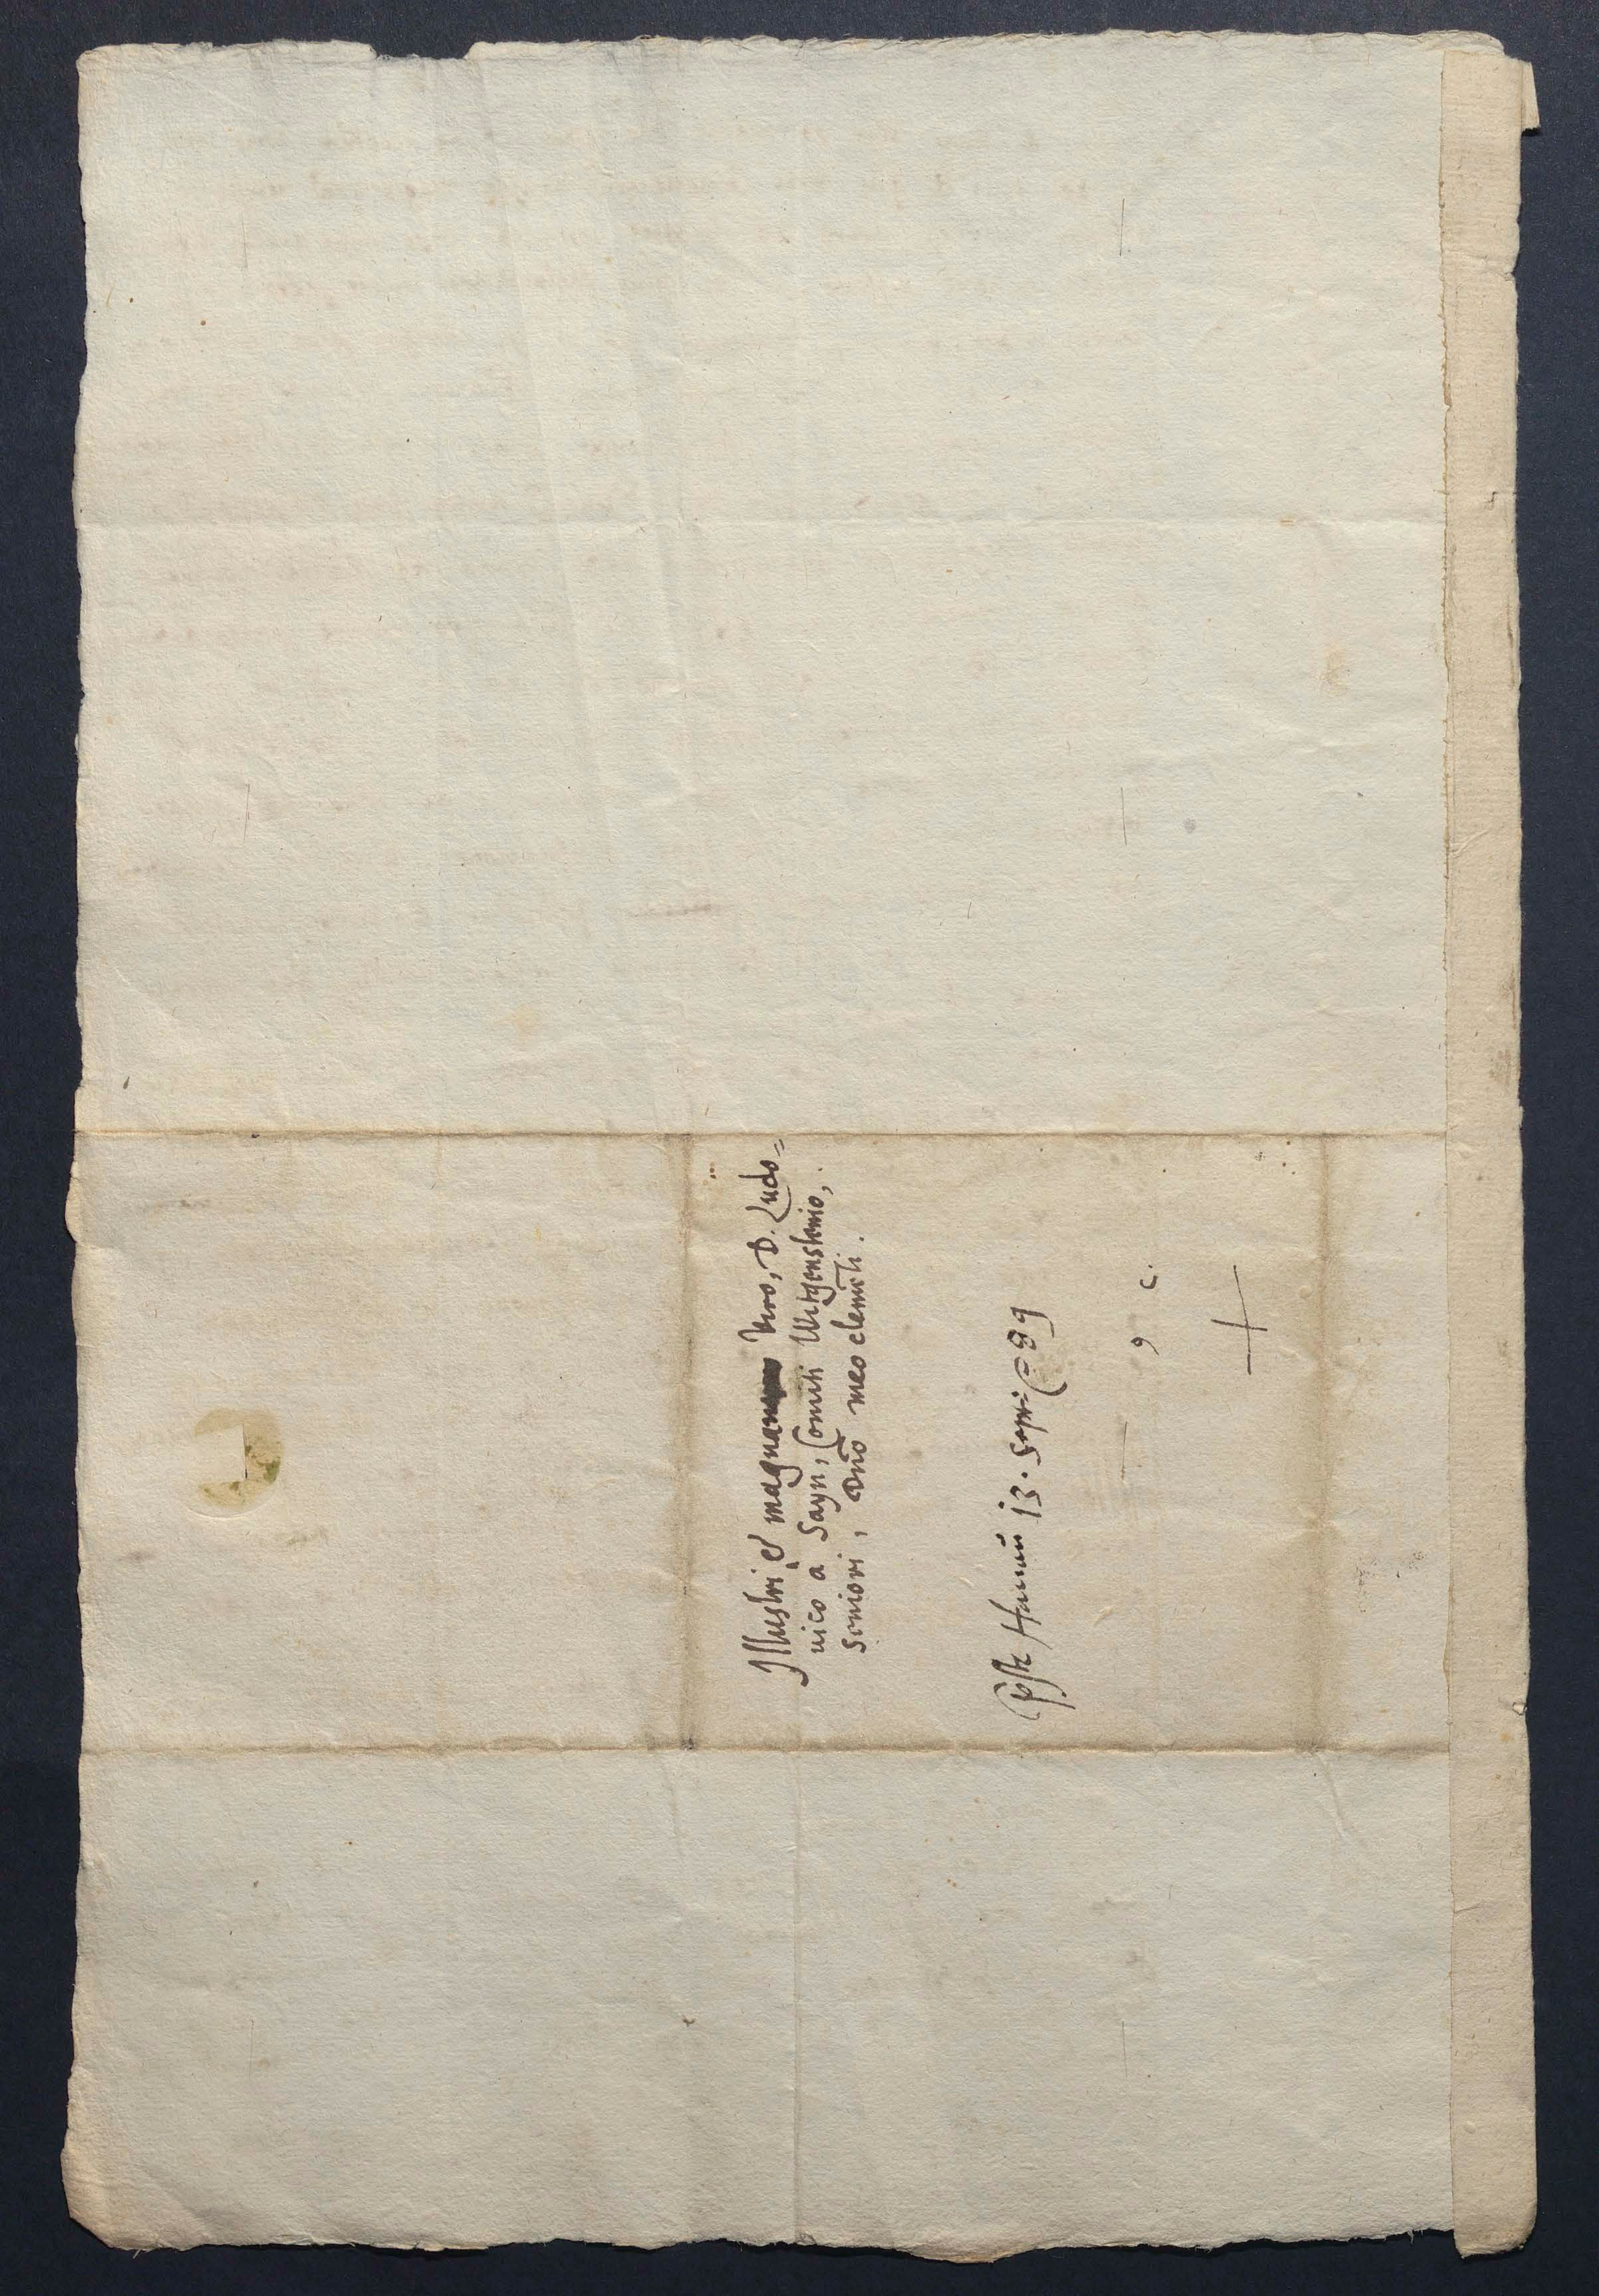 Illustri & magnanimo Viro, D. Ludo=
uico a Sayn, Comiti Witgensteinio,
Seniori, Dño meo clemẽti.
Hanau 13. Sept: 89
9 c.